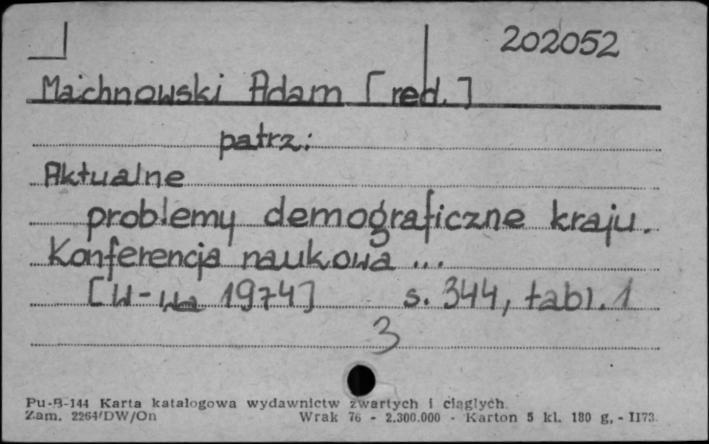 202052
Machnowski Adam [red.]
patrz:
Aktualne
problemy demograficzne kraju.
Konferencja naukowa ...
[W-wa 1974] s. 344, tabl. 1
3
Pu-B-144 Karta katalogowa wydawnictw zwartych i ciągłych.
Zam. 2264/DW/On Wrak 76 - 2.300.000 - Karton 5 kl. 180 g. - II73.